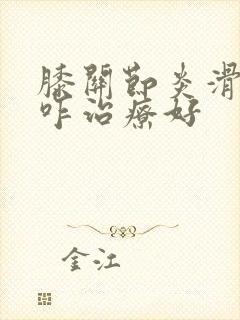 膝關節炎滑
咋治療好
金江